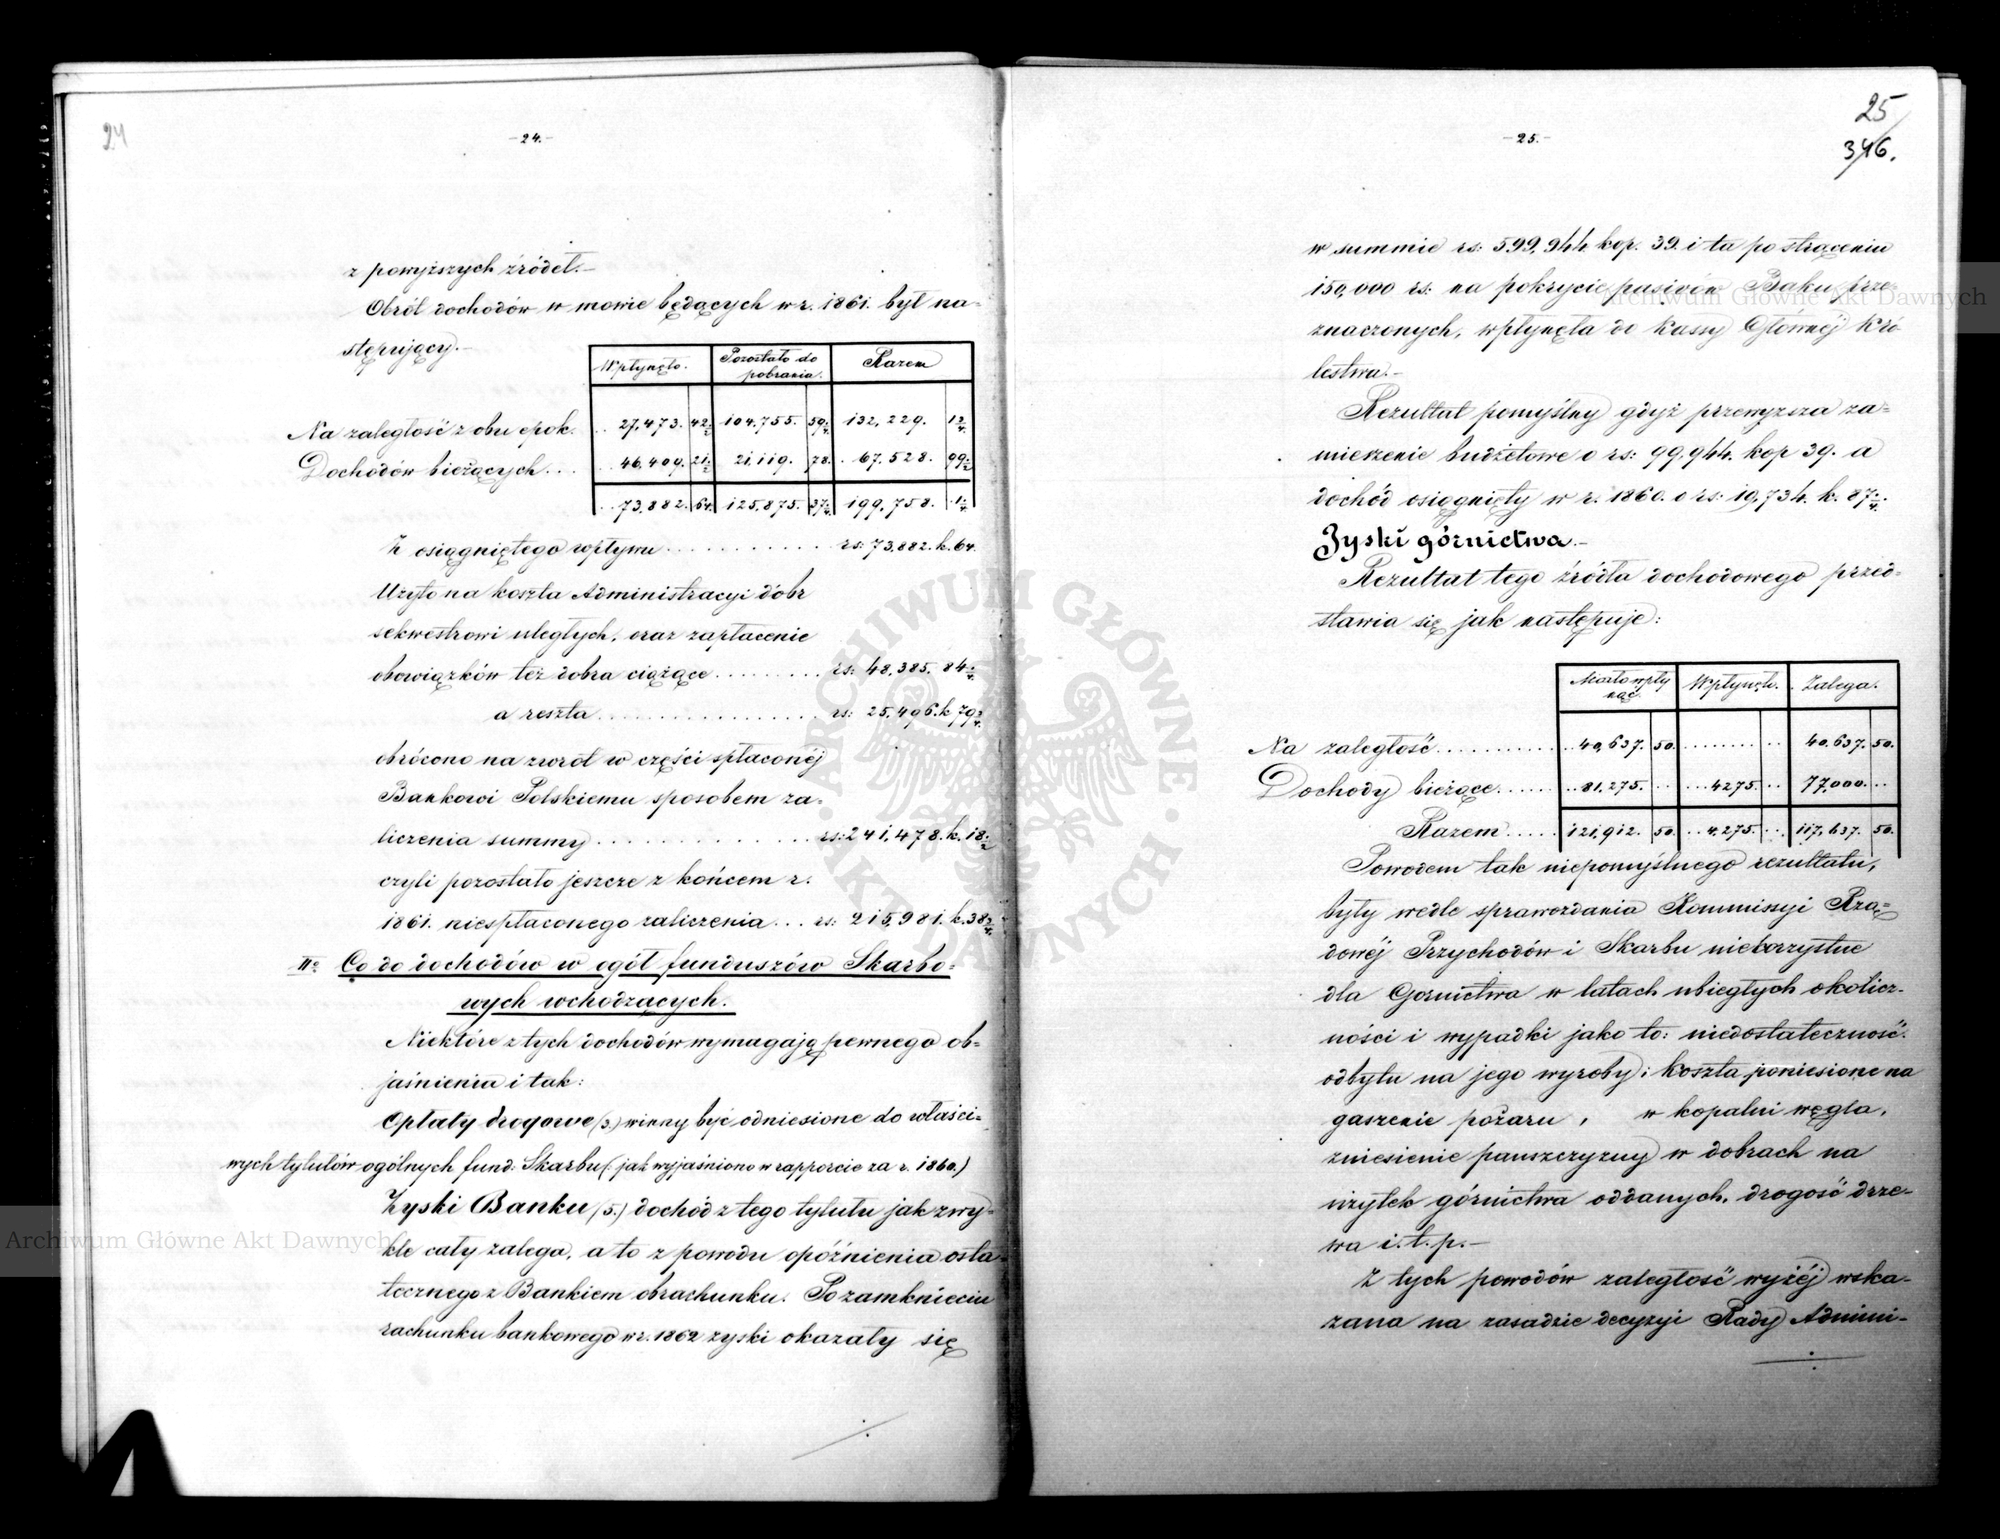 24
- 24. -
z powyższych źródeł.-
Obrót dochodów w mowie będących w r. 1861. był na=
stępujący.-
Wpłynęło. Pozostało do pobrania. Razem
Na zaległość z obu epok. 27,473. 42 1/2 104,755. 59 132,229. 1
Dochodów bieżących... 46,409. 21 1/2 21,119. 78. 67,528. 99 1/2
73,882. 64. 125,875. 37 199,758. 1
Z osiągniętego wpływu .......... rs: 73,882. k. 64.
Użyto na koszta Administracyi dóbr
sekwestrowi uległych, oraz zapłacenie
obowiązków też dobra ciążące ......... rs: 48,385. 84
a reszta ................ rs: 25,496. k 79
obrócono na zwrot w części spłaconéj
Bankowi Polskiemu sposobem za=
liczenia summy ............ rs: 241,478. k. 18 1/2
czyli pozostało jeszcze z końcem r.
1861. niespłaconego zaliczenia ... rs: 215,981. k. 38
IIo Co do dochodów w ogół funduszów Skarbo=
wych wchodzących.
Niektóre z tych dochodów wymagają pewnego ob=
jaśnienia i tak:
Opłaty drogowe (3.) winny być odniesione do właści=
wych tytułów ogólnych fund: Skarbu (: jak wyjaśniono w rapporcie za r. 1860.)
Zyski Banku (5.) dochód z tego tytułu jak zwy=
kle cały zalega, a to z powodu opóźnienia osta=
tecznego z Bankiem obrachunku. Po zamknięciu
rachunku bankowego w r. 1862 zyski okazały się
25
346.
- 25. -
w summie rs: 599,944 kop. 39. i ta po strąceniu
150,000 rs: na pokrycie pasivów Baku prze=
znaczonych, wpłynęła do kassy Głównéj Kró
lestwa.-
Rezultat pomyślny gdyż przewyższa za=
mierzenie budżetowe o rs: 99,944. kop 39. a
dochód osiągnięty w r. 1860. o rs: 10,734. k. 87
Zyski górnictwa.-
Rezultat tego źródła dochodowego przed=
stawia się jak następuje:
Miało wpły nąć Wpłynęło. Zalega.
Na zaległość........... 40,637. 50. ......... 40.637. 50.
Dochody bieżące....... 81,275. ... 4275. ... 77,000. ...
Razem..... 121,912. 50. .. 4,275. ... 117,637. 50.
Powodem tak niepomyślnego rezultatu,
były wedle sprawozdania Kommissyi Rzą=
dowéj Przychodów i Skarbu niekorzystne
dla Gornictwa w latach ubiegłych okolicz-
ności i wypadki jako to: niedostateczność
odbytu na jego wyroby; koszta poniesione na
gaszenie pożaru, w kopalni węgla,
zniesienie pańszczyzny w dobrach na
użytek górnictwa oddanych, drogość drze-
wa i. t. p.-
Z tych powodów zaległość wyżéj wska-
zana na zasadzie decyzyi Rady Admini-
Archiwum Główne Akt Dawnych
Archiwum Główne Akt Dawnych
ARCHIWUM GŁÓWNE AKT DAWNYCH